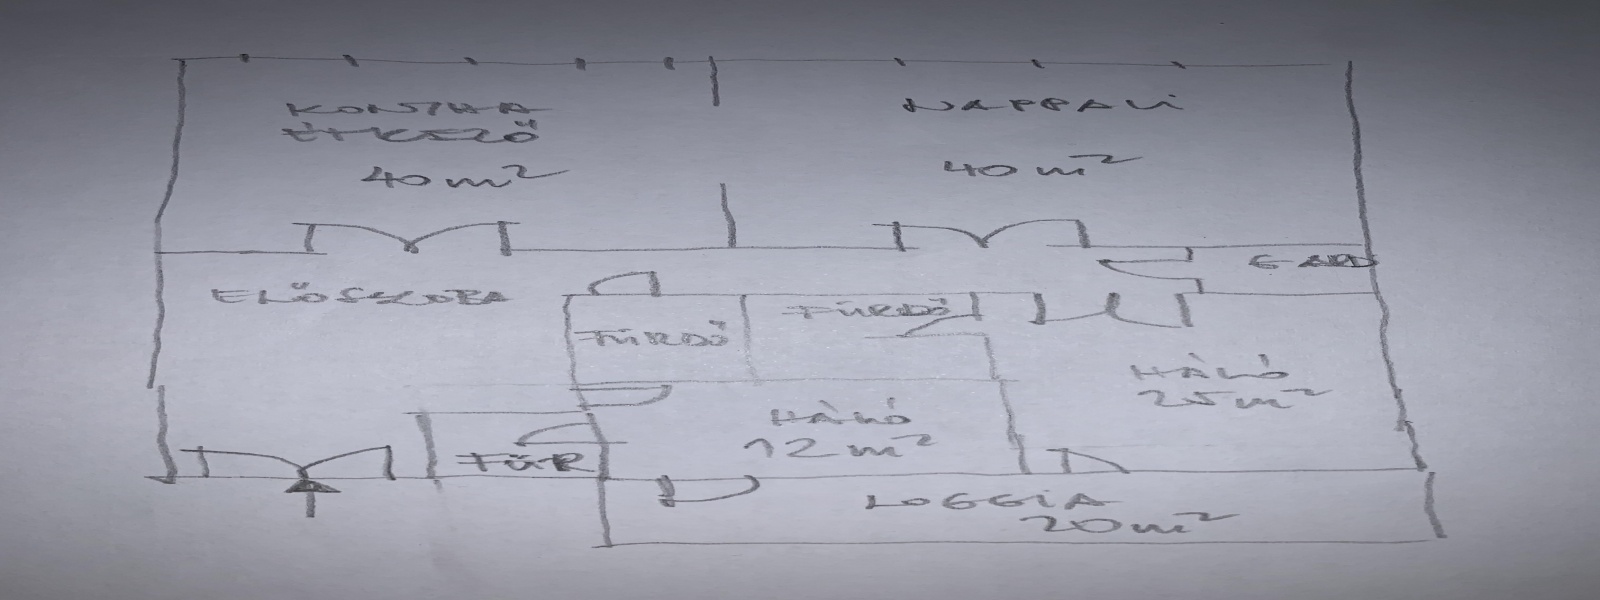 KONYHA
ÉTKEZŐ
40 m²
NAPPALI
40 m²
ELŐSZOBA
GARD
FÜRDŐ
FÜRDŐ
HÁLÓ
25 m²
HÁLÓ
12 m²
FÜR
LOGGIA
20 m²